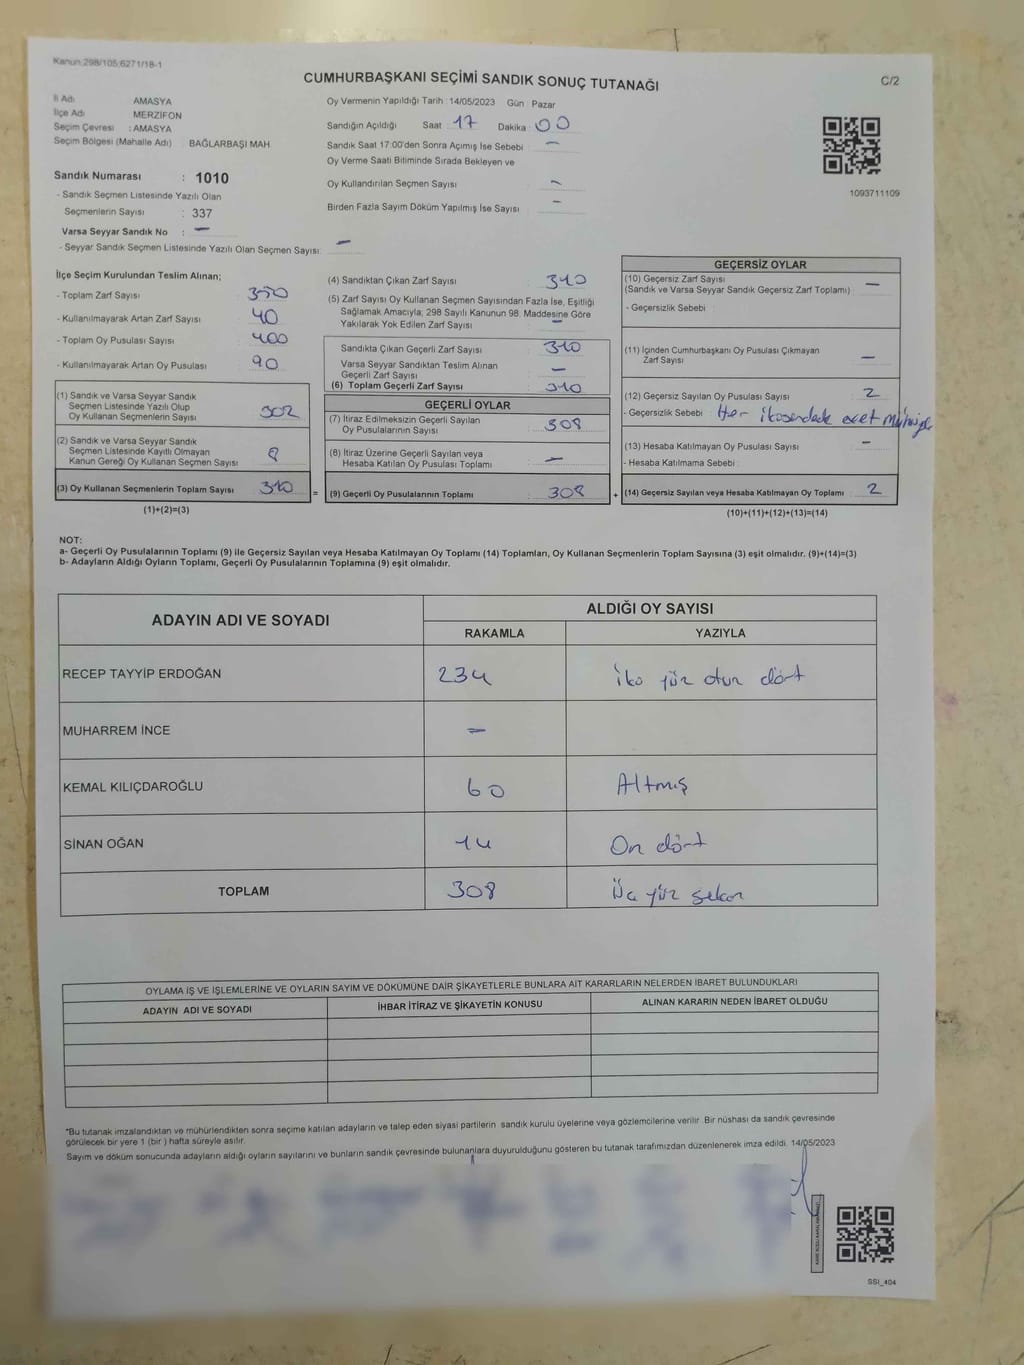 Kanun:298/105;6271/18-1
CUMHURBAŞKANI SEÇİMİ SANDIK SONUÇ TUTANAĞI
C/2
İl Adı AMASYA
İlçe Adı MERZİFON
Seçim Çevresi : AMASYA
Seçim Bölgesi (Mahalle Adı) BAĞLARBAŞI MAH
Sandık Numarası : 1010
- Sandık Seçmen Listesinde Yazılı Olan
Seçmenlerin Sayısı : 337
Varsa Seyyar Sandık No : -
- Seyyar Sandık Seçmen Listesinde Yazılı Olan Seçmen Sayısı: -
Oy Vermenin Yapıldığı Tarih : 14/05/2023 Gün : Pazar
Sandığın Açıldığı Saat : 17 Dakika : 00
Sandık Saat 17:00'den Sonra Açımış İse Sebebi : -
Oy Verme Saati Bitiminde Sırada Bekleyen ve
Oy Kullandırılan Seçmen Sayısı -
Birden Fazla Sayım Döküm Yapılmış İse Sayısı -
1093711109
İlçe Seçim Kurulundan Teslim Alınan;
- Toplam Zarf Sayısı : 350
- Kullanılmayarak Artan Zarf Sayısı : 40
- Toplam Oy Pusulası Sayısı : 400
- Kullanılmayarak Artan Oy Pusulası : 90
(1) Sandık ve Varsa Seyyar Sandık
Seçmen Listesinde Yazılı Olup
Oy Kullanan Seçmenlerin Sayısı 302
(2) Sandık ve Varsa Seyyar Sandık
Seçmen Listesinde Kayıtlı Olmayan
Kanun Gereği Oy Kullanan Seçmen Sayısı 8
(3) Oy Kullanan Seçmenlerin Toplam Sayısı 310 =
(1)+(2)=(3)
(4) Sandıktan Çıkan Zarf Sayısı : 310
(5) Zarf Sayısı Oy Kullanan Seçmen Sayısından Fazla İse, Eşitliği
Sağlamak Amacıyla; 298 Sayılı Kanunun 98. Maddesine Göre
Yakılarak Yok Edilen Zarf Sayısı : -
Sandıkta Çıkan Geçerli Zarf Sayısı : 310
Varsa Seyyar Sandıktan Teslim Alınan
Geçerli Zarf Sayısı : -
(6) Toplam Geçerli Zarf Sayısı : 310
GEÇERLİ OYLAR
(7) İtiraz Edilmeksizin Geçerli Sayılan
Oy Pusulalarının Sayısı : 308
(8) İtiraz Üzerine Geçerli Sayılan veya
Hesaba Katılan Oy Pusulası Toplamı : -
(9) Geçerli Oy Pusulalarının Toplamı : 308 +
GEÇERSİZ OYLAR
(10) Geçersiz Zarf Sayısı
(Sandık ve Varsa Seyyar Sandık Geçersiz Zarf Toplamı) -
- Geçersizlik Sebebi :
(11) İçinden Cumhurbaşkanı Oy Pusulası Çıkmayan
Zarf Sayısı -
(12) Geçersiz Sayılan Oy Pusulası Sayısı : 2
- Geçersizlik Sebebi : Her
(13) Hesaba Katılmayan Oy Pusulası Sayısı : -
- Hesaba Katılmama Sebebi :
(14) Geçersiz Sayılan veya Hesaba Katılmayan Oy Toplamı : 2
(10)+(11)+(12)+(13)=(14)
NOT:
a- Geçerli Oy Pusulalarının Toplamı (9) ile Geçersiz Sayılan veya Hesaba Katılmayan Oy Toplamı (14) Toplamları, Oy Kullanan Seçmenlerin Toplam Sayısına (3) eşit olmalıdır. (9)+(14)=(3)
b- Adayların Aldığı Oyların Toplamı, Geçerli Oy Pusulalarının Toplamına (9) eşit olmalıdır.
ADAYIN ADI VE SOYADI
ALDIĞI OY SAYISI
RAKAMLA YAZIYLA
RECEP TAYYİP ERDOĞAN 234 iki yüz otuz dört
MUHARREM İNCE -
KEMAL KILIÇDAROĞLU 60 Altmış
SİNAN OĞAN 14 On dört
TOPLAM 308 Üç yüz sekiz
OYLAMA İŞ VE İŞLEMLERİNE VE OYLARIN SAYIM VE DÖKÜMÜNE DAİR ŞİKAYETLERLE BUNLARA AİT KARARLARIN NELERDEN İBARET BULUNDUKLARI
ADAYIN ADI VE SOYADI İHBAR İTİRAZ VE ŞİKAYETİN KONUSU ALINAN KARARIN NEDEN İBARET OLDUĞU
*Bu tutanak imzalandıktan ve mühürlendikten sonra seçime katılan adayların ve talep eden siyasi partilerin sandık kurulu üyelerine veya gözlemcilerine verilir. Bir nüshası da sandık çevresinde
görülecek bir yere 1 (bir ) hafta süreyle asılır.
Sayım ve döküm sonucunda adayların aldığı oyların sayılarını ve bunların sandık çevresinde bulunanlara duyurulduğunu gösteren bu tutanak tarafımızdan düzenlenerek imza edildi. 14/05/2023
SSI_404